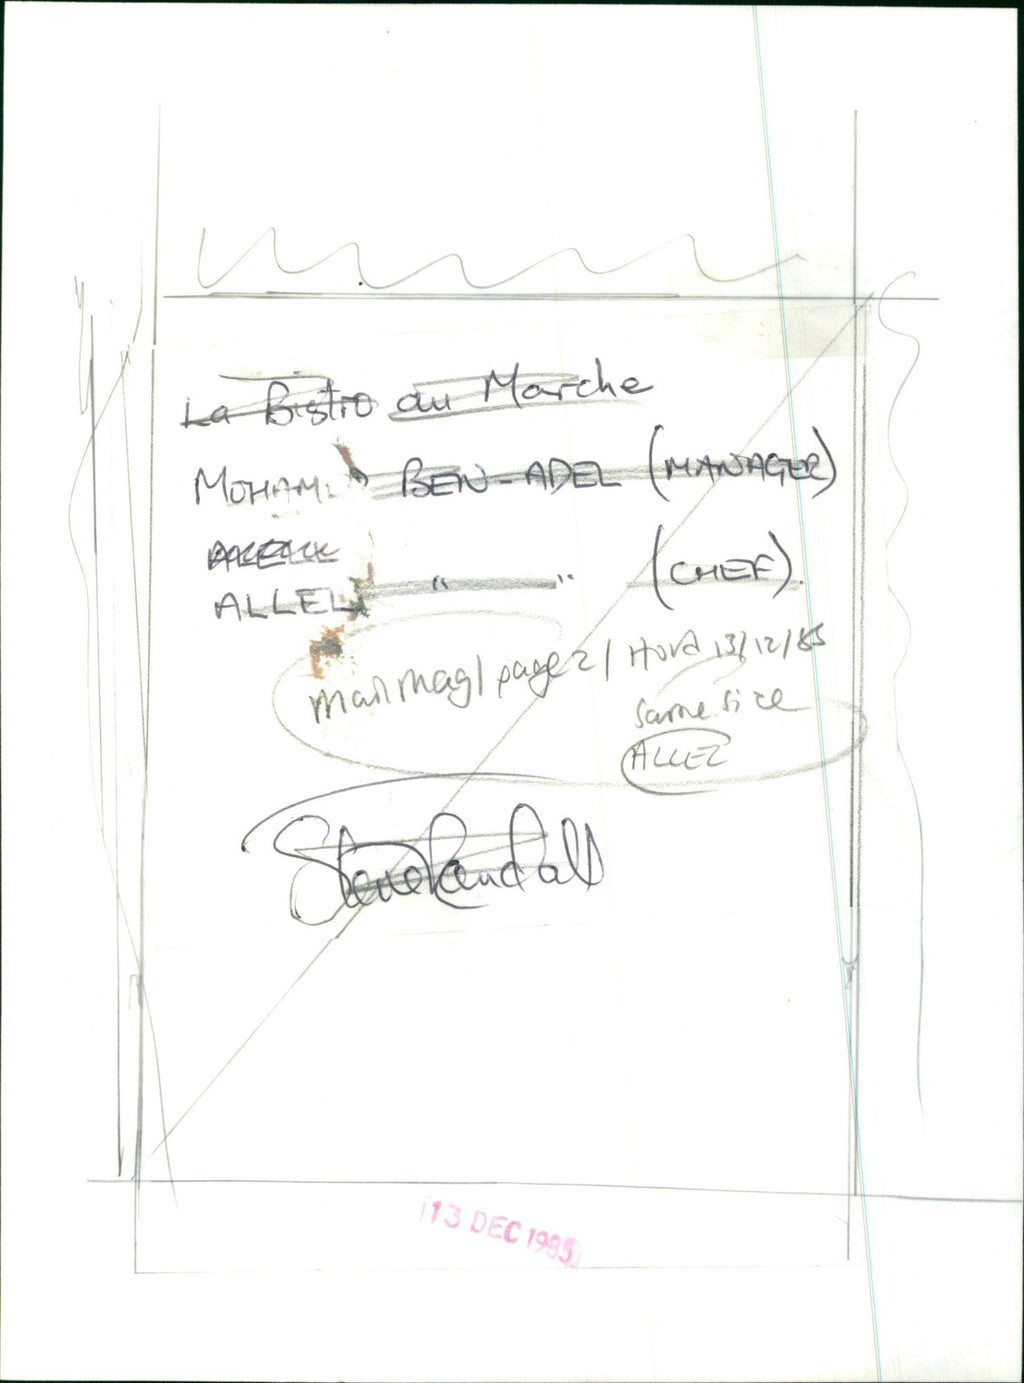 La Bistro au Marche
MOHAMED BEN-ADEL (MANAGER)
ALLEL " " (CHEF).
Mail Mag / page 2 / 13/12/85
same size
ALLEZ
Steve Rendall
13 DEC 1985